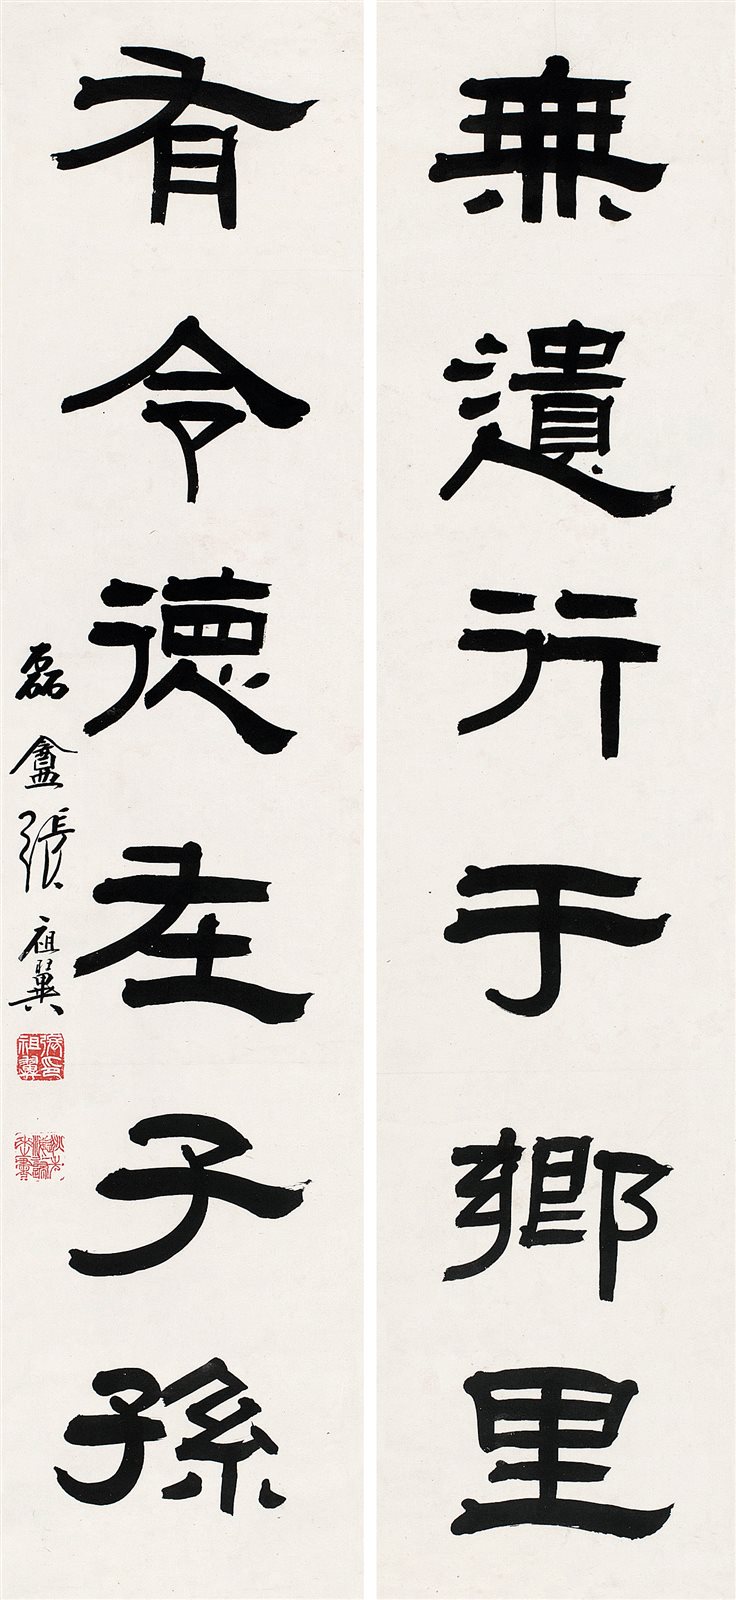 無遺行于鄉里
有令德在子孫
磊盦張祖翼
張祖翼印